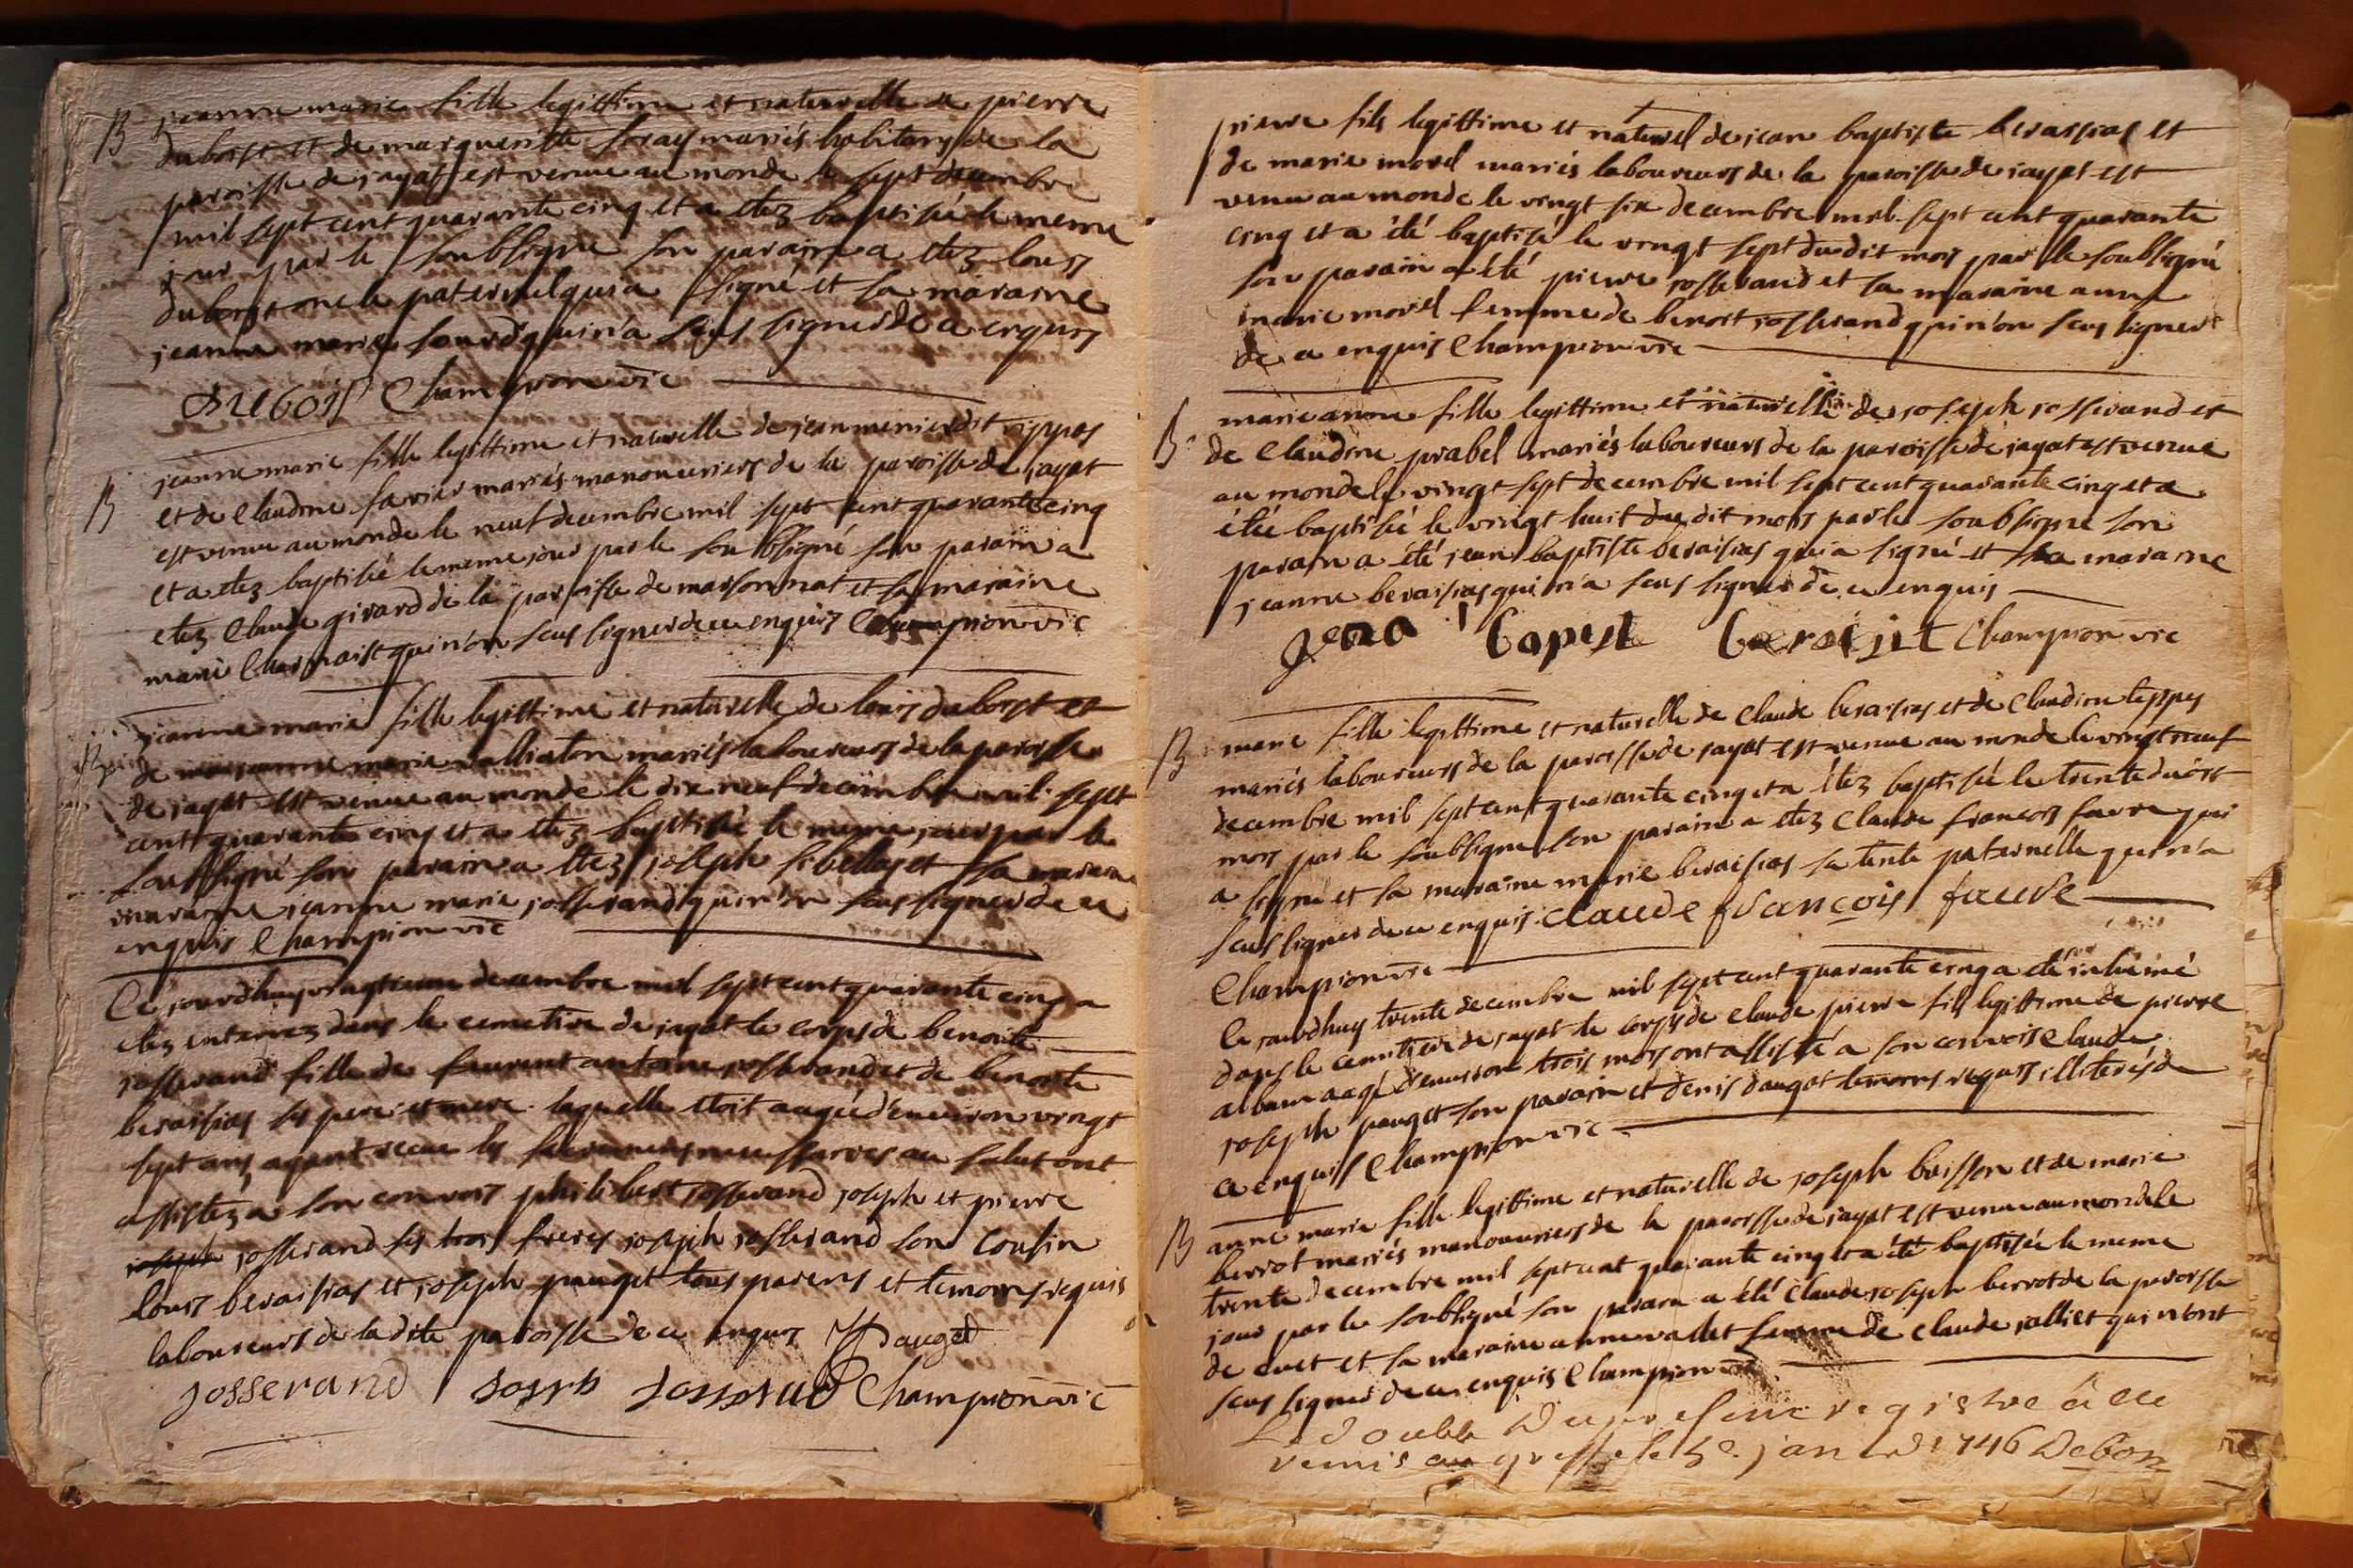 B jeanne marie fille legittime et naturelle de pierre
duborjet et de margueritte mariés habitans de la
paroisse de jayat est venue au monde le sept decembre
mil sept cent quarante cinq et a etez baptisée le meme
jour par le soubsigne son parain a etez louis
duborjet oncle paternel qui a signé et sa maraine
jeanne marie qui n'a seus signer de ce enquis
Champion vic
B jeanne marie fille legittime et naturelle de jean menier dit
et de claudine favier mariés manouvriers de la paroisse de jayat
est venue au monde le neuf decembre mil sept cent quarante cinq
et a etez baptisée le meme jour par le soubsigné son parain a
etez claude girard de la paroisse de marsonnat et sa maraine
marie qui n'on seus signer de ce enquis Champion vic
jeanne marie fille legittime et naturelle de louis duborjet et
de jeanne marie mariés laboureurs de la paroisse
de jayat est venue au monde le dix neuf decembre mil sept
cent quarante cinq et a etez baptisée le meme jour par le
soubsigné son parain a etez joseph et sa maraine
maraine jeanne marie josserand qui n'on seus signer de ce
enquis Champion vic
Ce jourdhuy vingt decembre mil sept cent quarante cinq a
etez enterrez dans le cemetiere de jayat le corps de benoite
josserand fille de antoine josserand et de benoite
beraisias ses pere et mere laquelle etoit aagée d'environ vingt
sept ans ayant recue les sacremens necessaires au salut ont
assistez a son convois philibert josserand joseph et pierre
joseph josserand ses trois freres joseph josserand son cousin
louis beraisias et joseph pauget tous parens et temoins requis
laboureurs de la dite paroisse de ce enquis pauget
josserand Champion vic
pierre fils legittime et naturel de jean baptiste beraisias et
de marie morel mariés laboureurs de la paroisse de jayat est
venu au monde le vingt six decembre mil sept cent quarante
cinq et a été baptisé le vingt sept du dit mois par le soubsigné
son parain a été pierre josserand et sa maraine anne
marie morel femme de benoit josserand qui n'on seus signer
de ce enquis Champion vic
B marie anne fille legittime et naturelle de joseph josserand et
de Claudine prabel mariés laboureurs de la paroisse de jayat est venue
au monde le vingt sept decembre mil sept cent quarante cinq et a
étée baptisée le vingt huit du dit mois par le soubsigné son
parain a été jean baptiste beraisias qui a signé et sa maraine
jeanne beraisias qui n'a seus signer de ce enquis
Champion vic
B marie fille legittime et naturelle de claude beraisias et de claudine teppes
mariés laboureurs de la paroisse de jayat est venue au monde le vingt neuf
decembre mil sept cent quarante cinq et a étez baptisée le trente du
mois par le soubsigné son parain a etez claude françois favre qui
a signé et sa maraine marie beraisias sa tente paternelle qui n'a
seus signer de ce enquis claude françois fauvre
Champion vic
Ce jourdhuy trente decembre mil sept cent quarante cinq a eté inhumé
dans le cemetiere de jayat le corps de claude pierre fils legittime de pierre
alban aagé d'environ trois mois ont assisté a son convois claude
joseph pauget son parain et denis temoins requis illiterés de
ce enquis Champion vic
B anne marie fille legittime et naturelle de joseph buisson et de marie
berrot mariés manouvriers de la paroisse de jayat est venue au monde le
trente decembre mil sept cent quarante cinq et a été baptisée le meme
jour par le soubsigné son parain a été claude joseph berrot de la paroisse
de cuet et sa maraine anne vallet femme de claude jalliet qui n'ont
seus signer de ce enquis Champion vic
Le double Du present registre a été
remis au greffe le janv 1746 Debon